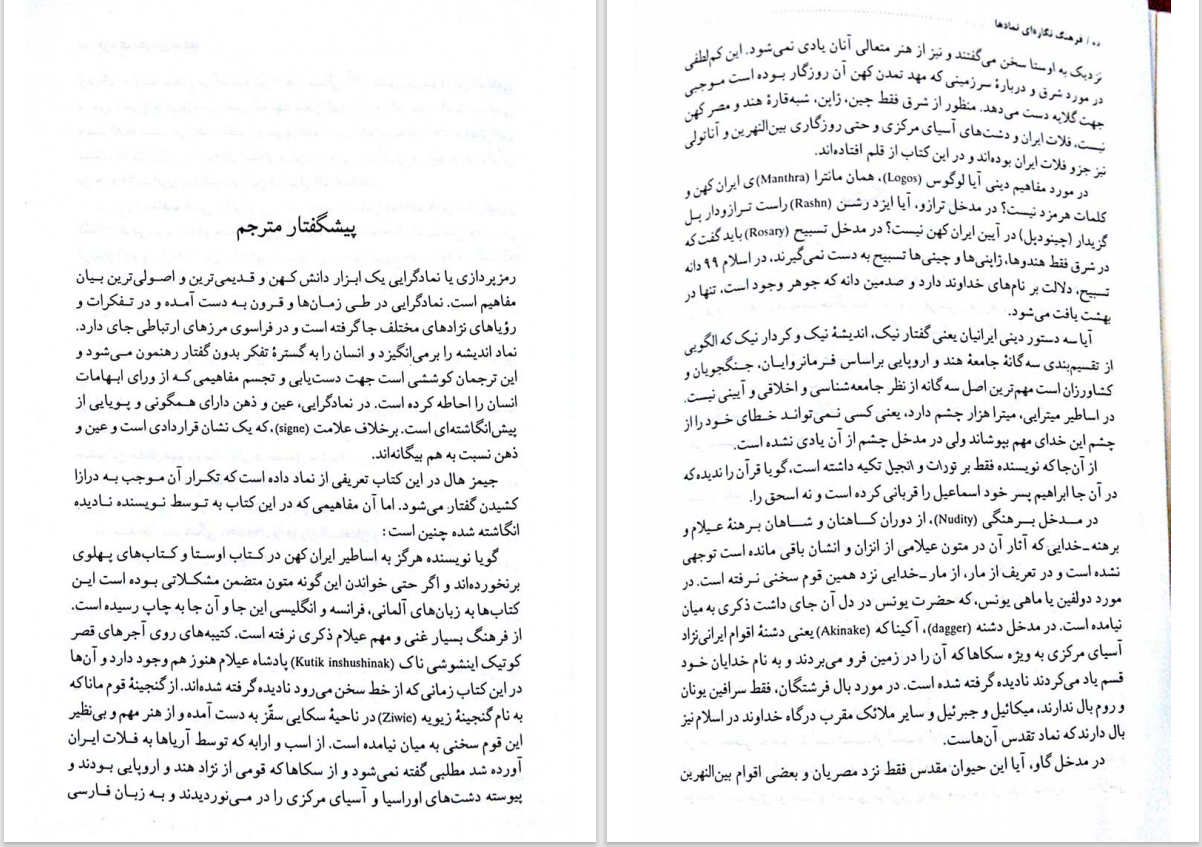 پیشگفتار مترجم
رمزپردازی یا نمادگرایی یک ابزار دانش کهن و قدیمی‌ترین و اصولی‌ترین بیان
مفاهیم است. نمادگرایی در طی زمان‌ها و قرون به دست آمده و در تفکرات و
رؤیاهای نژادهای مختلف جا گرفته است و در فراسوی مرزهای ارتباطی جای دارد.
نماد اندیشه را برمی‌انگیزد و انسان را به گسترهٔ تفکر بدون گفتار رهنمون می‌شود و
این ترجمان کوششی است جهت دست‌یابی و تجسم مفاهیمی که از ورای ابهامات
انسان را احاطه کرده است. در نمادگرایی، عین و ذهن دارای همگونی و پویایی از
پیش‌انگاشته‌ای است. برخلاف علامت (signe)، که یک نشان قراردادی است و عین و
ذهن نسبت به هم بیگانه‌اند.
جیمز هال در این کتاب تعریفی از نماد داده است که تکرار آن موجب به درازا
کشیدن گفتار می‌شود. اما آن مفاهیمی که در این کتاب به توسط نویسنده نادیده
انگاشته شده چنین است:
گویا نویسنده هرگز به اساطیر ایران کهن در کتاب اوستا و کتاب‌های پهلوی
برنخورده‌اند و اگر حتی خواندن این گونه متون متضمن مشکلاتی بوده است این
کتاب‌ها به زبان‌های آلمانی، فرانسه و انگلیسی این جا و آن جا به چاپ رسیده است.
از فرهنگ بسیار غنی و مهم عیلام ذکری نرفته است. کتیبه‌های روی آجرهای قصر
کوتیک اینشوشی ناک (Kutik inshushinak) پادشاه عیلام هنوز هم وجود دارد و آن‌ها
در این کتاب زمانی که از خط سخن می‌رود نادیده گرفته شده‌اند. از گنجینهٔ قوم مانا که
به نام گنجینهٔ زیویه (Ziwie) در ناحیهٔ سکایی سقّز به دست آمده و از هنر مهم و بی‌نظیر
این قوم سخنی به میان نیامده است. از اسب و ارابه که توسط آریاها به فلات ایران
آورده شد مطلبی گفته نمی‌شود و از سکاها که قومی از نژاد هند و اروپایی بودند و
پیوسته دشت‌های اوراسیا و آسیای مرکزی را در می‌نوردیدند و به زبان فارسی
ده / فرهنگ نگاره‌ای نمادها
نزدیک به اوستا سخن می‌گفتند و نیز از هنر متعالی آنان یادی نمی‌شود. این کم‌لطفی
در مورد شرق و دربارهٔ سرزمینی که مهد تمدن کهن آن روزگار بوده است موجبی
جهت گلایه دست می‌دهد. منظور از شرق فقط چین، ژاپن، شبه‌قارهٔ هند و مصر کهن
نیست، فلات ایران و دشت‌های آسیای مرکزی و حتی روزگاری بین‌النهرین و آناتولی
نیز جزو فلات ایران بوده‌اند و در این کتاب از قلم افتاده‌اند.
در مورد مفاهیم دینی آیا لوگوس (Logos)، همان مانترا (Manthra)ی ایران کهن و
کلمات هرمزد نیست؟ در مدخل ترازو، آیا ایزد رشن (Rashn) راست ترازودار پل
گزیدار (چینودپل) در آیین ایران کهن نیست؟ در مدخل تسبیح (Rosary) باید گفت که
در شرق فقط هندوها، ژاپنی‌ها و چینی‌ها تسبیح به دست نمی‌گیرند، در اسلام ۹۹ دانه
تسبیح، دلالت بر نام‌های خداوند دارد و صدمین دانه که جوهر وجود است، تنها در
بهشت یافت می‌شود.
آیا سه دستور دینی ایرانیان یعنی گفتار نیک، اندیشهٔ نیک و کردار نیک که الگویی
از تقسیم‌بندی سه گانهٔ جامعهٔ هند و اروپایی براساس فرمانروایان، جنگجویان و
کشاورزان است مهم‌ترین اصل سه گانه از نظر جامعه‌شناسی و اخلاقی و آیینی نیست.
در اساطیر میترایی، میترا هزار چشم دارد، یعنی کسی نمی‌تواند خطای خود را از
چشم این خدای مهم بپوشاند ولی در مدخل چشم از آن یادی نشده است.
از آن‌جا که نویسنده فقط بر تورات و انجیل تکیه داشته است، گویا قرآن را ندیده که
در آن جا ابراهیم پسر خود اسماعیل را قربانی کرده است و نه اسحق را.
در مدخل برهنگی (Nudity)، از دوران کاهنان و شاهان برهنهٔ عیلام و
برهنه‌ـخدایی که آثار آن در متون عیلامی از انزان و انشان باقی مانده است توجهی
نشده است و در تعریف از مار، از مارـخدایی نزد همین قوم سخنی نرفته است. در
مورد دولفین یا ماهی یونس، که حضرت یونس در دل آن جای داشت ذکری به میان
نیامده است. در مدخل دشنه (dagger)، آکیناکه (Akinake) یعنی دشنهٔ اقوام ایرانی‌نژاد
آسیای مرکزی به ویژه سکاها که آن را در زمین فرو می‌بردند و به نام خدایان خود
قسم یاد می‌کردند نادیده گرفته شده است. در مورد بال فرشتگان، فقط سرافین یونان
و روم بال ندارند، میکائیل و جبرئیل و سایر ملائک مقرب درگاه خداوند در اسلام نیز
بال دارند که نماد تقدس آن‌هاست.
در مدخل گاو، آیا این حیوان مقدس فقط نزد مصریان و بعضی اقوام بین‌النهرین